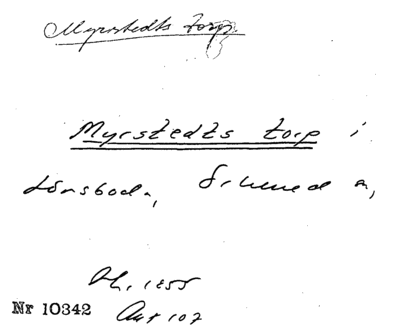 Myrstedts torp
Myrstedts torp i
Lönsboda, Örkened s,
Nr 10342